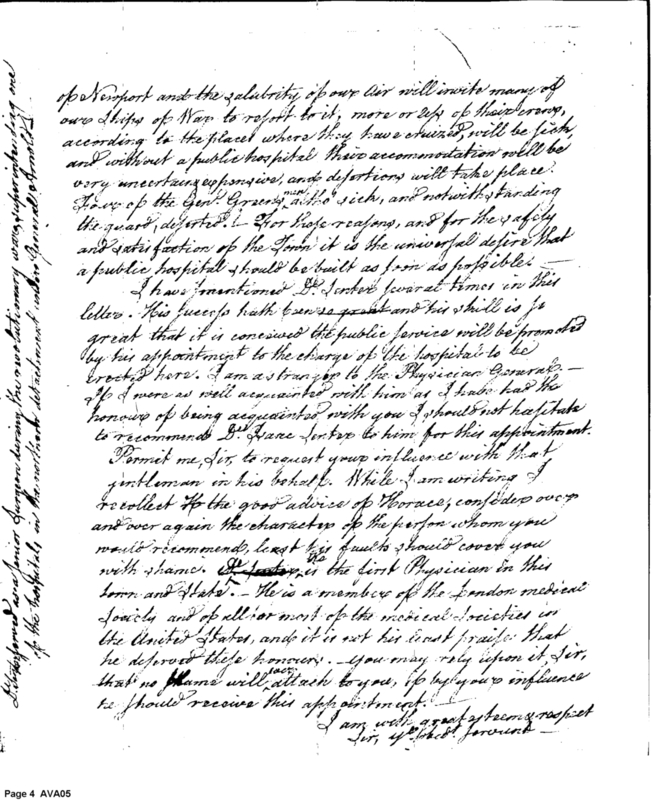 of Newport and the salubrity of our air will invite many of
our Ships of War to resort to it, more or less of their crews,
according to the places where they have cruized, will be sick,
and without a public hospital their accommodation will be
very uncertain, expensive, and desertions will take place.
Four of the Genl. Greens men, altho' sick, and notwithstanding
the guard, deserted! — For those reasons, and for the safety
and satisfaction of the Town it is the universal desire that
a public hospital should be built as soon as possible. —
I have mentioned Dr. Senter several times in this
letter. His success hath been so great and his skill is so
great that it is conceived the public service will be promoted
by his appointment to the charge of the hospital to be
erected here. I am a stranger to the Physician General. —
If I were as well acquainted with him as I have had the
honour of being acquainted with you I should not hesitate
to recommend Dr. Isaac Senter to him for this appointment.
Permit me, Sir, to request your influence with that
gentleman in his behalf. While I am writing I
recollect the good advice of Horace; consider over
and over again the character of the person whom you
would recommend, least his faults should cover you
with shame. Dr. Senter is the first Physician in this
town and State. — He is a member of the London medical
Society and of all or most of the medical Societies in
the United States, and it is not his least praise that
he deserved these honours. — You may rely upon it, Sir,
that no shame will ever attach to you, if by your influence
he should receive this appointment. —
I am with great esteem & respect
Sir, yr. obedt. servant —
He performed as a senior Surgeon during the revolutionary war, superintending one
of the hospitals in the northern detachment under General Arnold
Page 4 AVA05